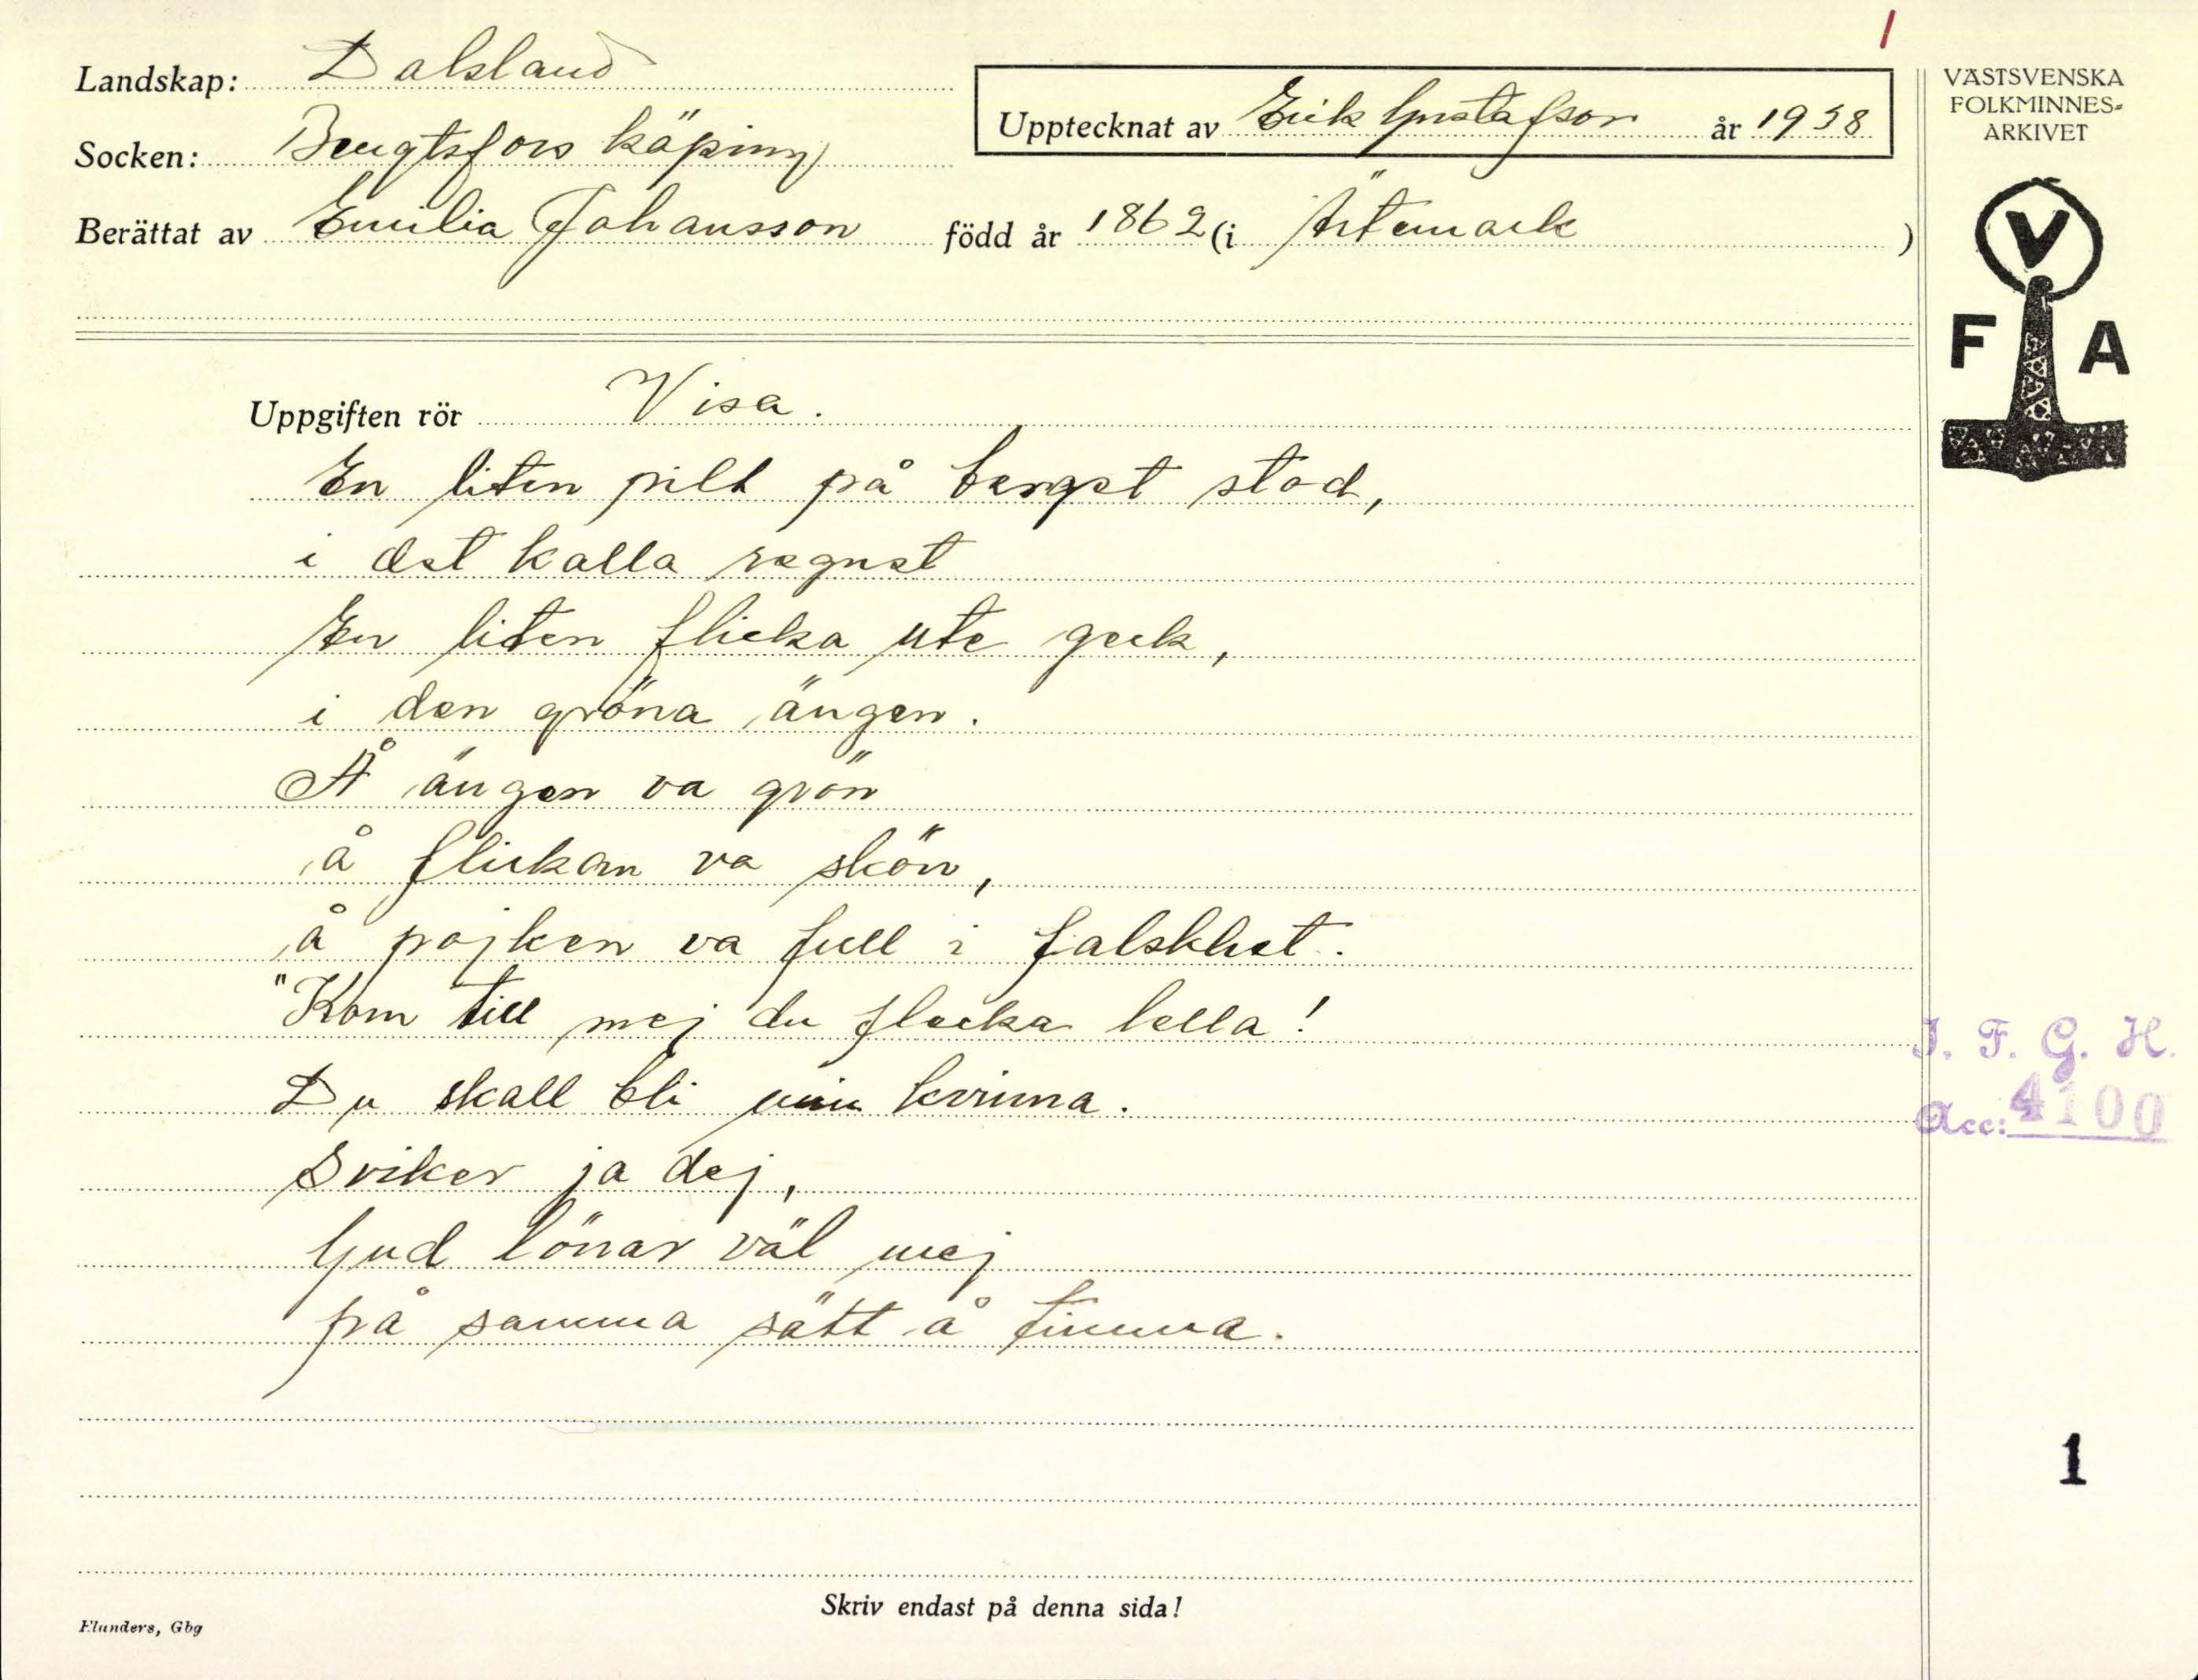 1
Landskap: Dalsland
Socken: Bengtsfors köping
Upptecknat av Erik Gustafson år 1938
Berättat av Emilia Johansson född år 1862 (i Ärtemark )
VÄSTSVENSKA
FOLKMINNES-
ARKIVET
V
F A
Uppgiften rör Visa.
En liten pilt på berget stod,
i det kalla regnet
En liten flicka ute geck,
i den gröna ängen.
Å ängen va grön
å flickan va skön,
å pojken va full i falskhet.
"Kom till mej du flecka lella!
Du skall bli min kvinna.
Sviker ja dej,
Gud lönar väl mej
på samma sätt å timma.
I. F. G. H.
Acc: 4100
1
Skriv endast på denna sida!
Elanders, Gbg